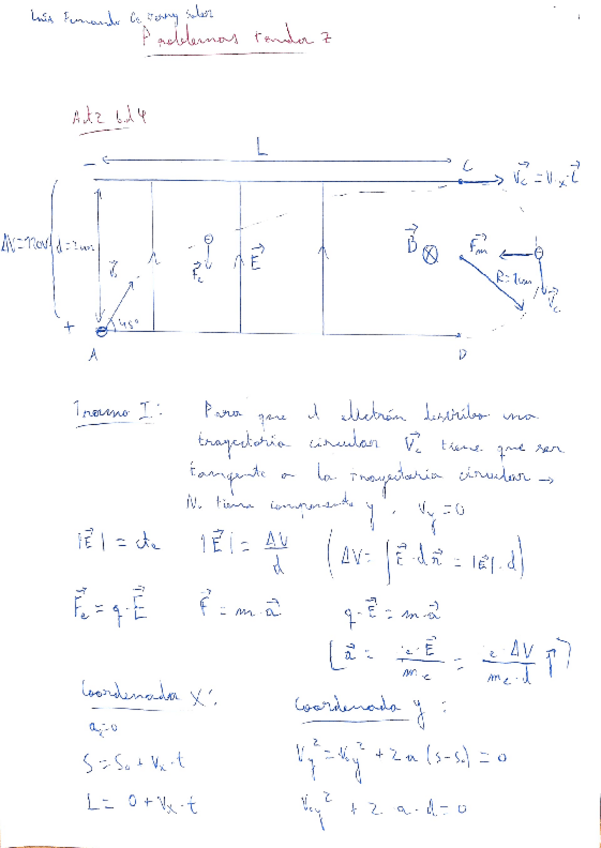 Luis Fernando
Problemas tanda 7
L
C
−
V⃗c = Vx · i⃗
ΔV=120V
d=2cm
V⃗
F⃗e
E⃗
B⃗ ⊗
F⃗m
R=2cm
V⃗c
+
45°
A
D
Tramo I: Para que el electrón describa una
trayectoria circular V⃗c tiene que ser
tangente a la trayectoria circular →
N. tiene componente y. Vy = 0
|E⃗| = cte |E⃗| = ΔV/d (ΔV = ∫E⃗·dr⃗ = |E⃗|·d)
F⃗e = q·E⃗ F⃗ = m·a⃗ q·E⃗ = m·a⃗
[a⃗ = e·E⃗/me = e·ΔV/(me·d) j⃗]
Coordenada X: Coordenada y:
ax=0
S = So + Vx·t Vy² = Voy² + 2a(s-so) = 0
L = 0 + Vx·t Voy² + 2·a·d = 0